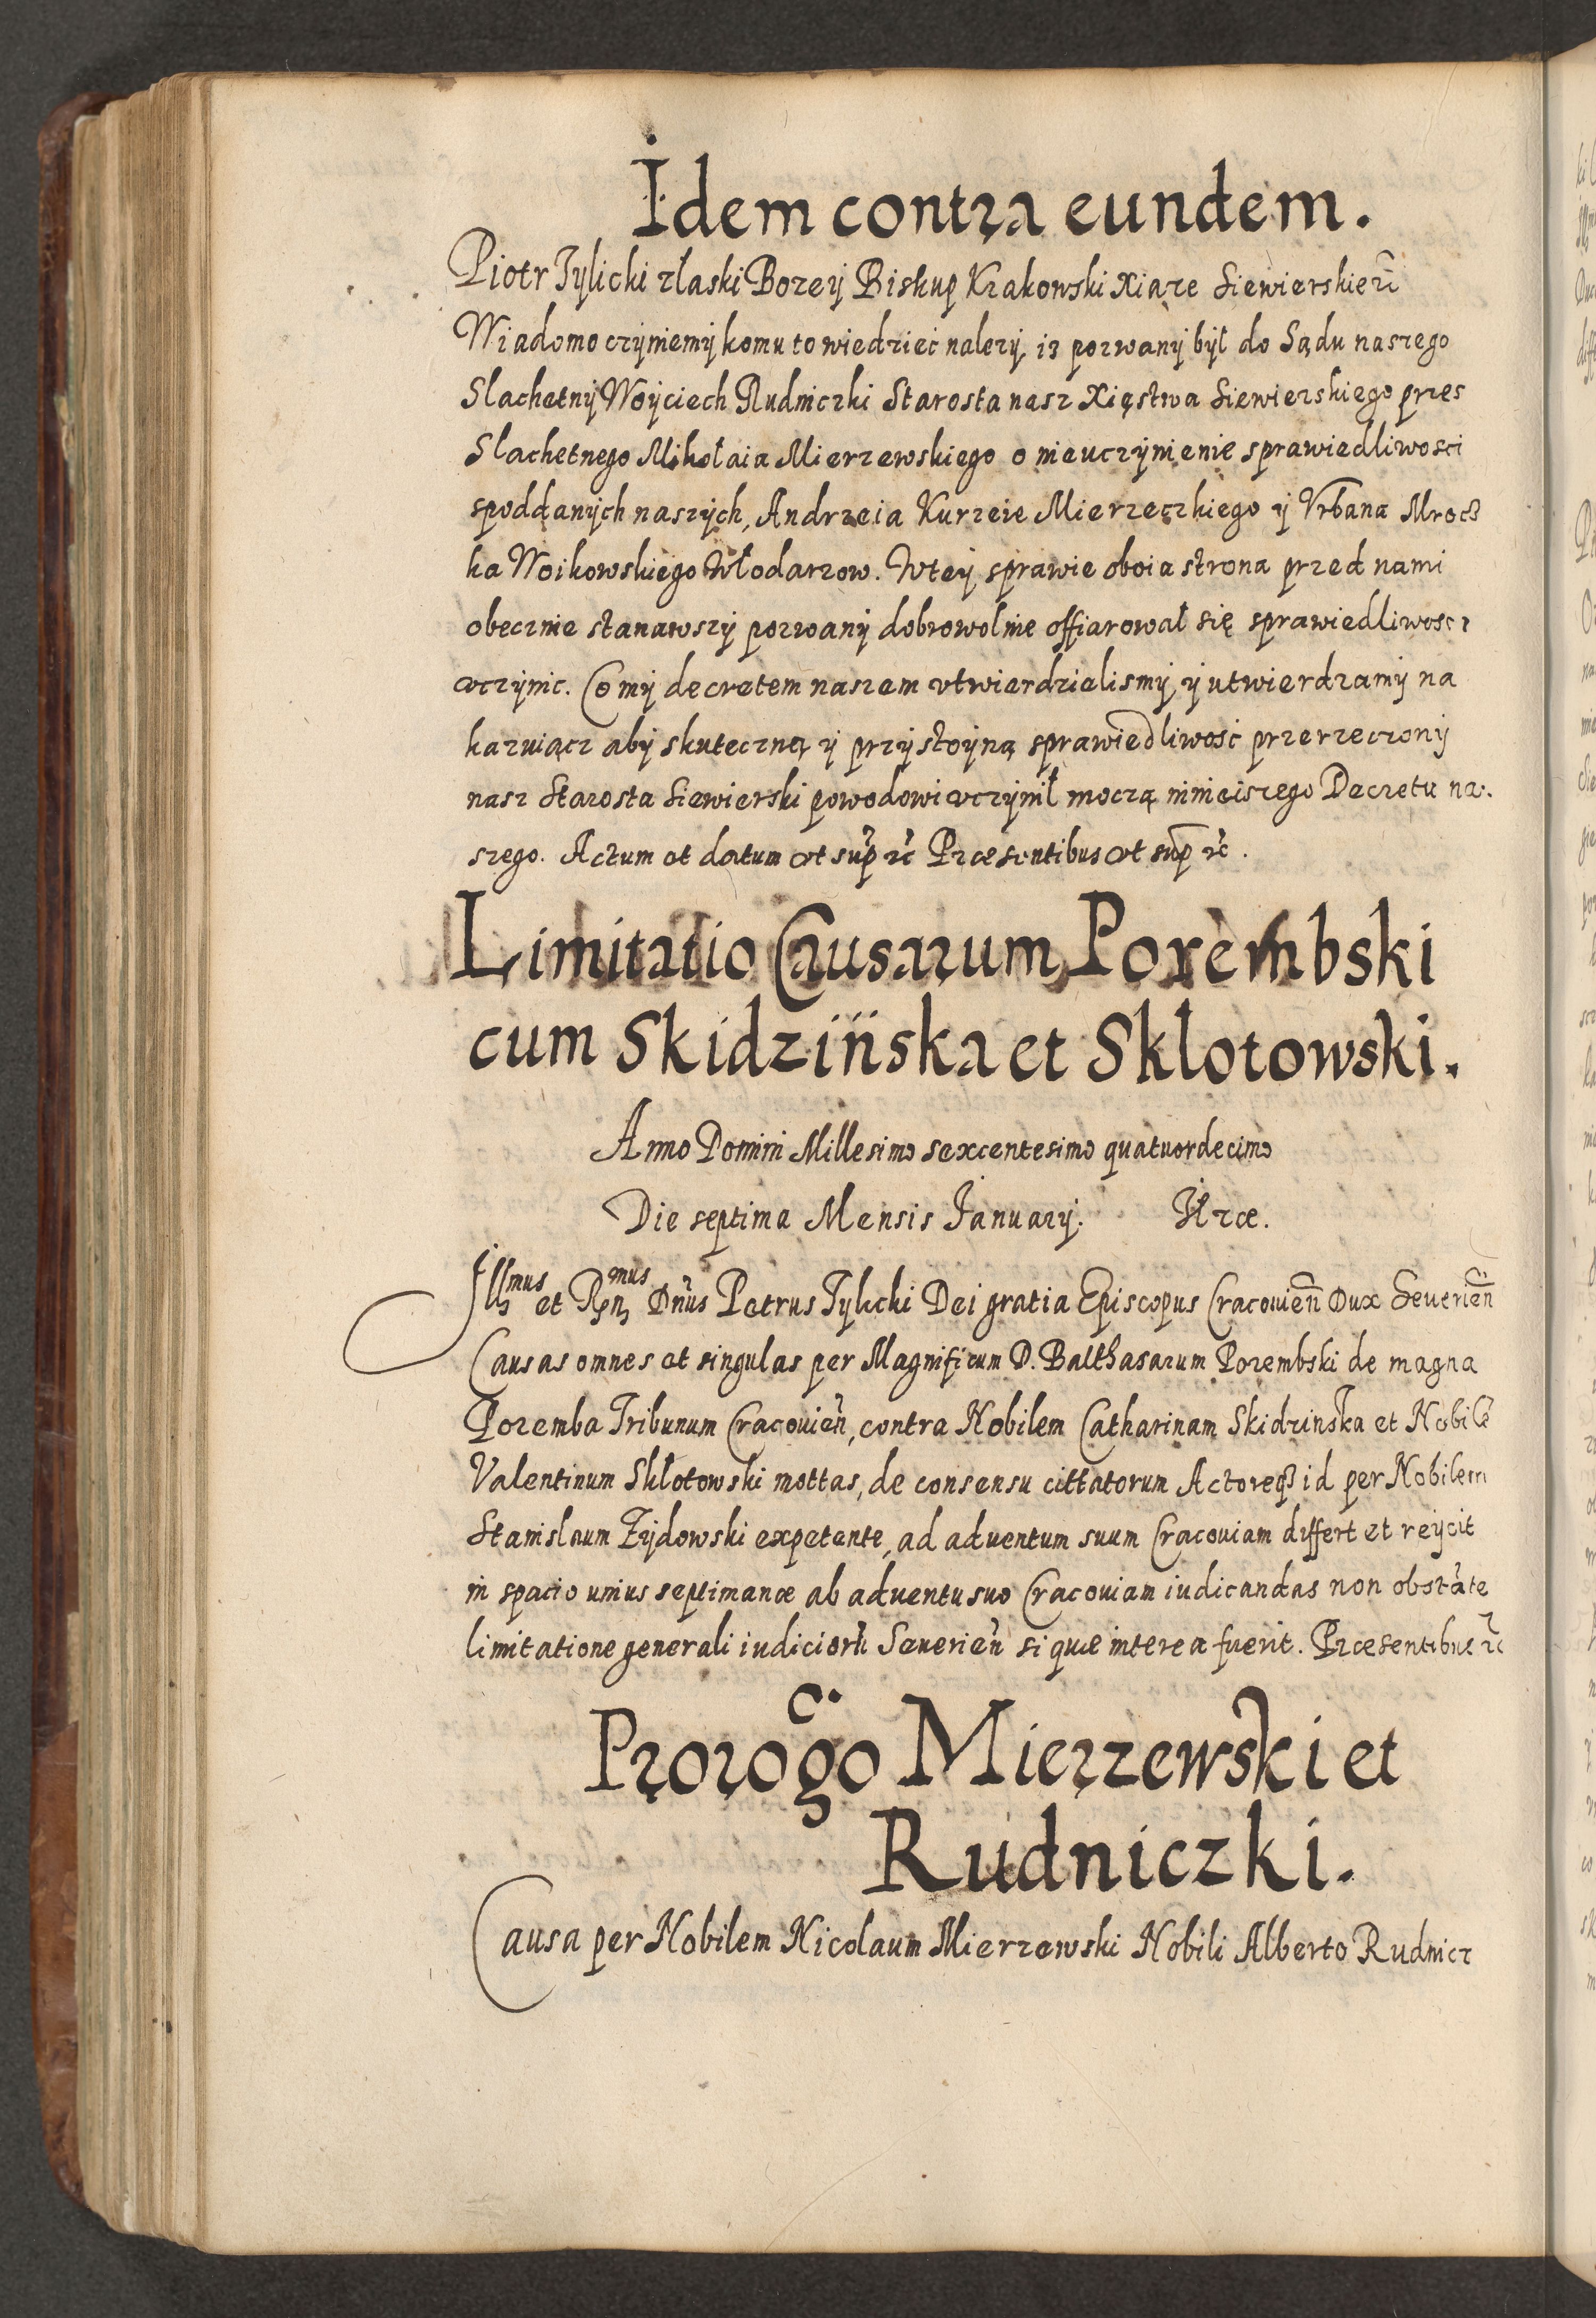 Idem contra eundem.
Piotr Tylicki z łaski Bozey Biskup Krakowski Xiaze Siewierskie rc̃
Wiadomo czyniemy komu to wiedziec nalezy, iz pozwany był do Sądu naszego
Slachetny Woyciech Rudniczki Starosta nasz Xięstwa Siewierskiego przes
Slachetnego Mikołaia Mierzewskiego o nieuczynienie sprawiedliwosci
spoddanych naszych, Andrzeia Kurzeie Mierzeczkiego y Vrbana Mrocz
ka Woikowskiego Włodarzow. W tey sprawie oboia strona przed nami
obecznie stanawszy pozwany dobrowolnie offiarował się sprawiedliwosci
vczynic. Co my decretem naszem vtwierdzielismy, y utwierdzamy na
kazuiącz aby skuteczną y przystoyną sprawiedliwość przerzeczony
nasz Starosta Siewierski powodowi vczynił moczą ninieiszego Decretu na.
szego. Actum et datum vt sup̃ rc̃ Præsentibus vt sup̃ rc̃.
Limitatio Causarum Porembski
cum Skidzińska et Sklotowski.
Anno Domini Millesimo sexcentesimo quatuordecimo
Die septima Mensis January.
Illmus et Rnmus Dñus Petrus Tylicki Dei gratia Episcopus Cracouień Dux Seuerień
Causas omnes et singulas per Magnificum D. Balthasarum Porembski de magna
Poremba Tribunum Cracouień, contra Nobilem Catharinam Skidzinska et Nobilẽ
Valentinum Skłotowski mottas, de consensu cittatorum Actoreqꝫ id per Nobilem
Stanislaum Zydowski expetente, ad aduentum suum Cracouiam differt et reÿcit
in spacio unius septimanæ ab aduentu suo Cracouiam iudicandas non obstãte
limitatione generali iudiciorũ Seuerień si quæ interea fuerit. Præsentibus rc̃
Prorogõ Mierzewski et
Rudniczki.
Causa per Nobilem Nicolaum Mierzewski Nobili Alberto Rudnicz